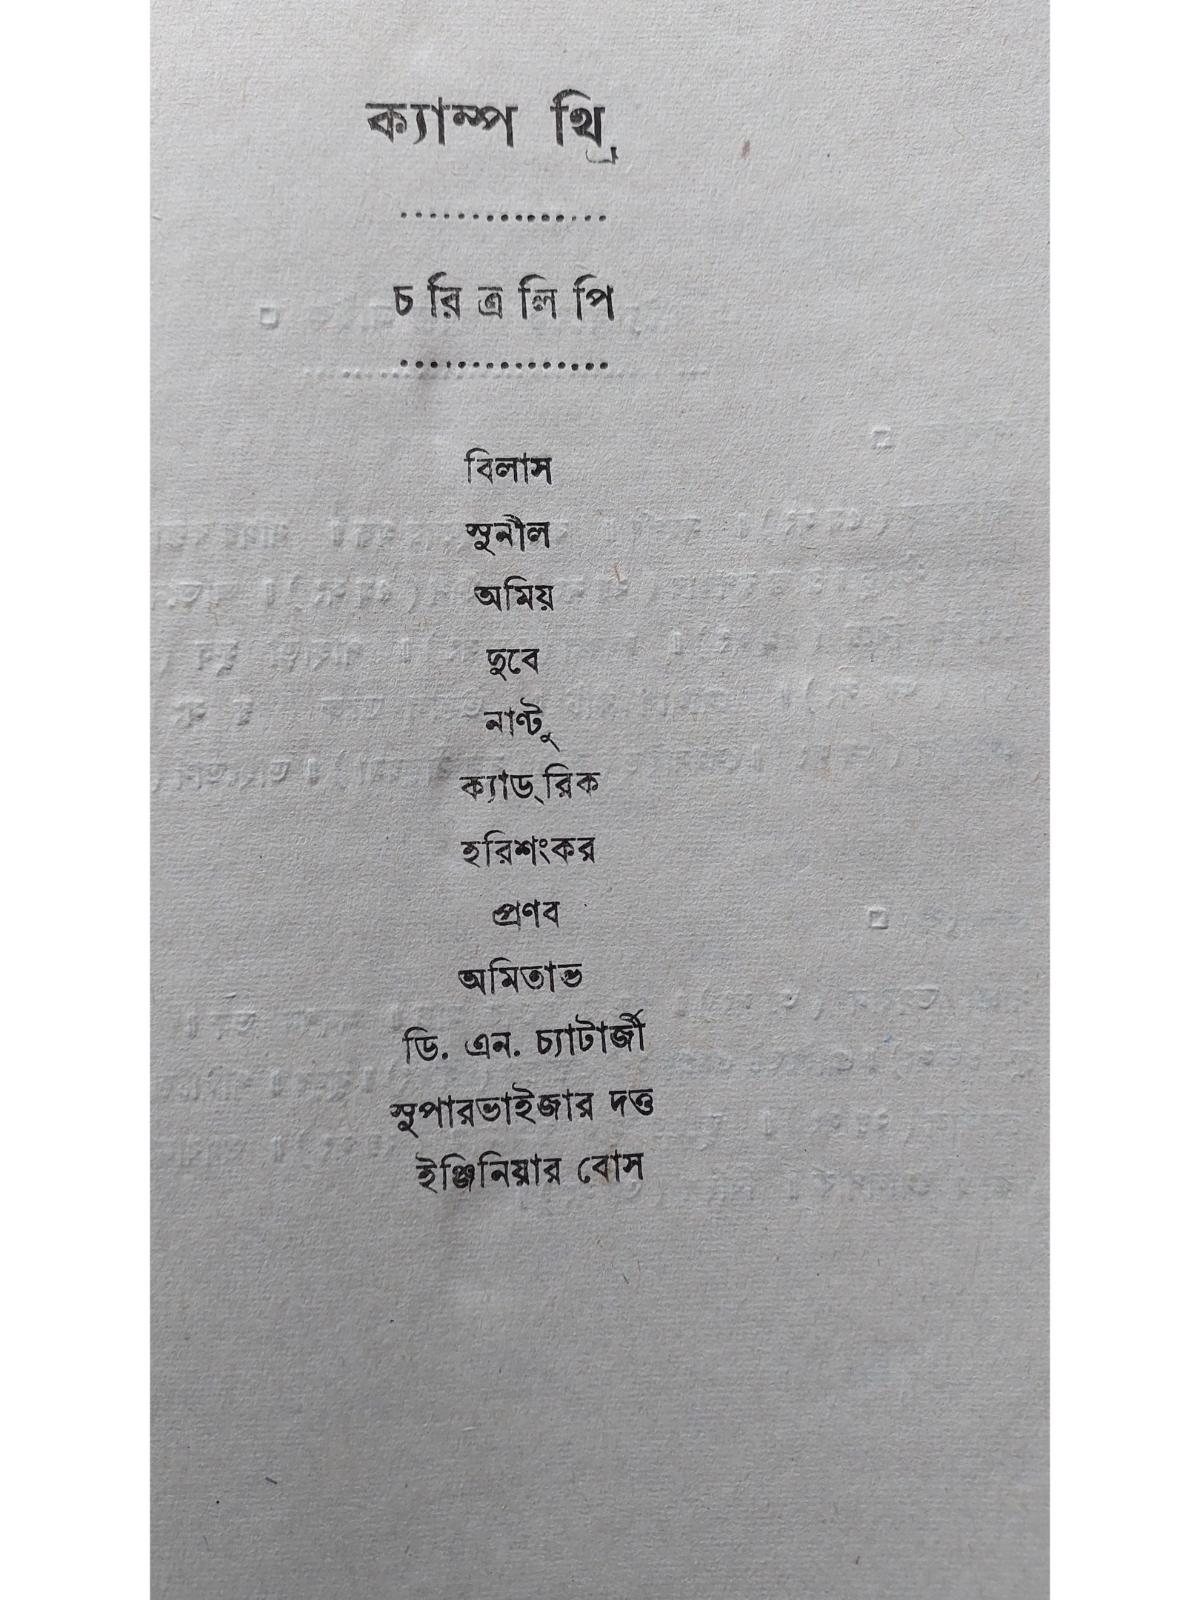 ক্যাম্প থ্রি
...............
চ রি ত্র লি পি
...............
বিলাস
সুনীল
অমিয়
দুবে
নাণ্টু
ক্যাড্‌রিক
হরিশংকর
প্রণব
অমিতাভ
ডি. এন. চ্যাটার্জী
সুপারভাইজার দত্ত
ইঞ্জিনিয়ার বোস